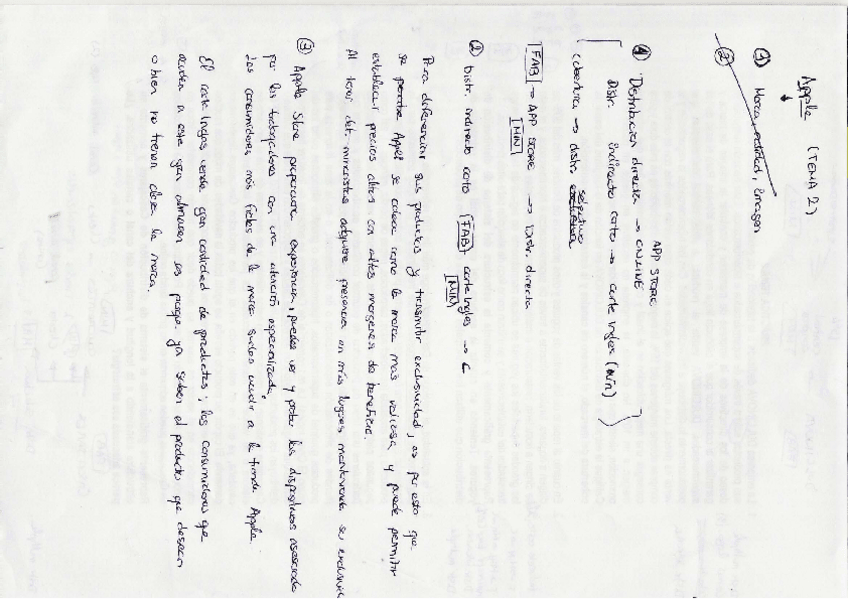 Apple (TEMA 2)
↓
① Marca, calidad, imagen
②
① Distribución directa → ONLINE APP STORE
Distr. indirecto corto → corte ingles (Min)
cobertura → distr. selectiva
FAB → APP STORE → Distr. directa
MIN
② Distr. indirecto corto FAB + corte Ingles → C
MIN
Para diferenciar sus productos y transmitir exclusividad, es por esto que
se percibe Appel se coloca como la marca mas valiosa y puede permitir
establecer precios altos con altos margenes de beneficio.
Al tener det. minoristas adquiere presencia en más lugares manteniendo su
③ Apple Store proporciona experiencia, puedes ver y probar los dispositivos asesorado
por los trabajadores con una atención especializada,
Los consumidores más fieles de la marca suelen acudir a la tienda Apple.
El corte Ingles vende gran cantidad de productos, los consumidores que
acuden a este gran almacen es porque ya saben el producto que desean
o bien no tienen clara la marca.